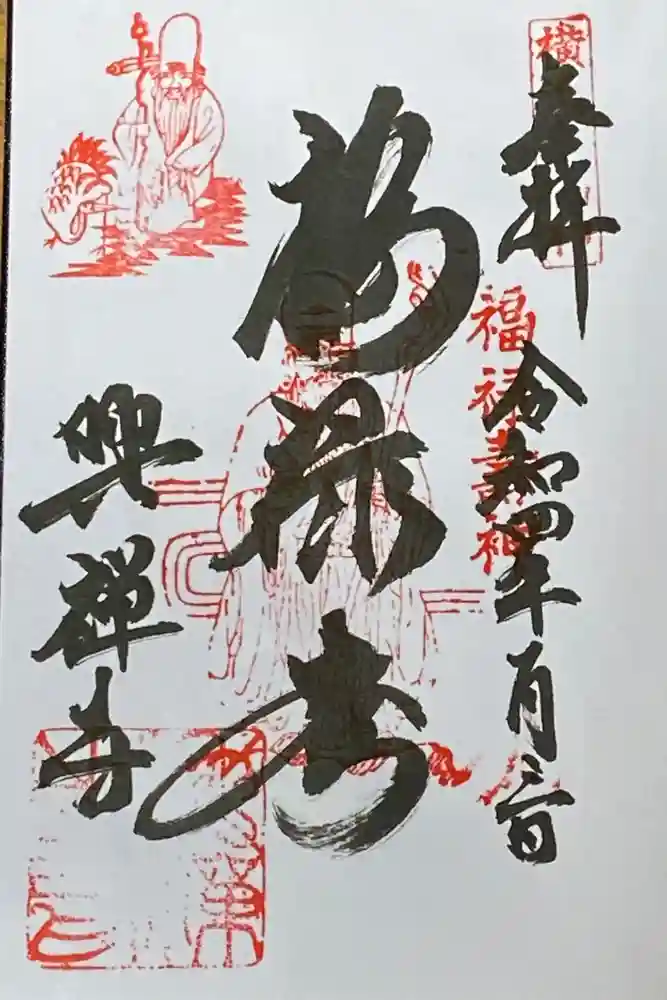 奉拝
令和四年一月三日
福禄壽神
福禄寿
興禅寺